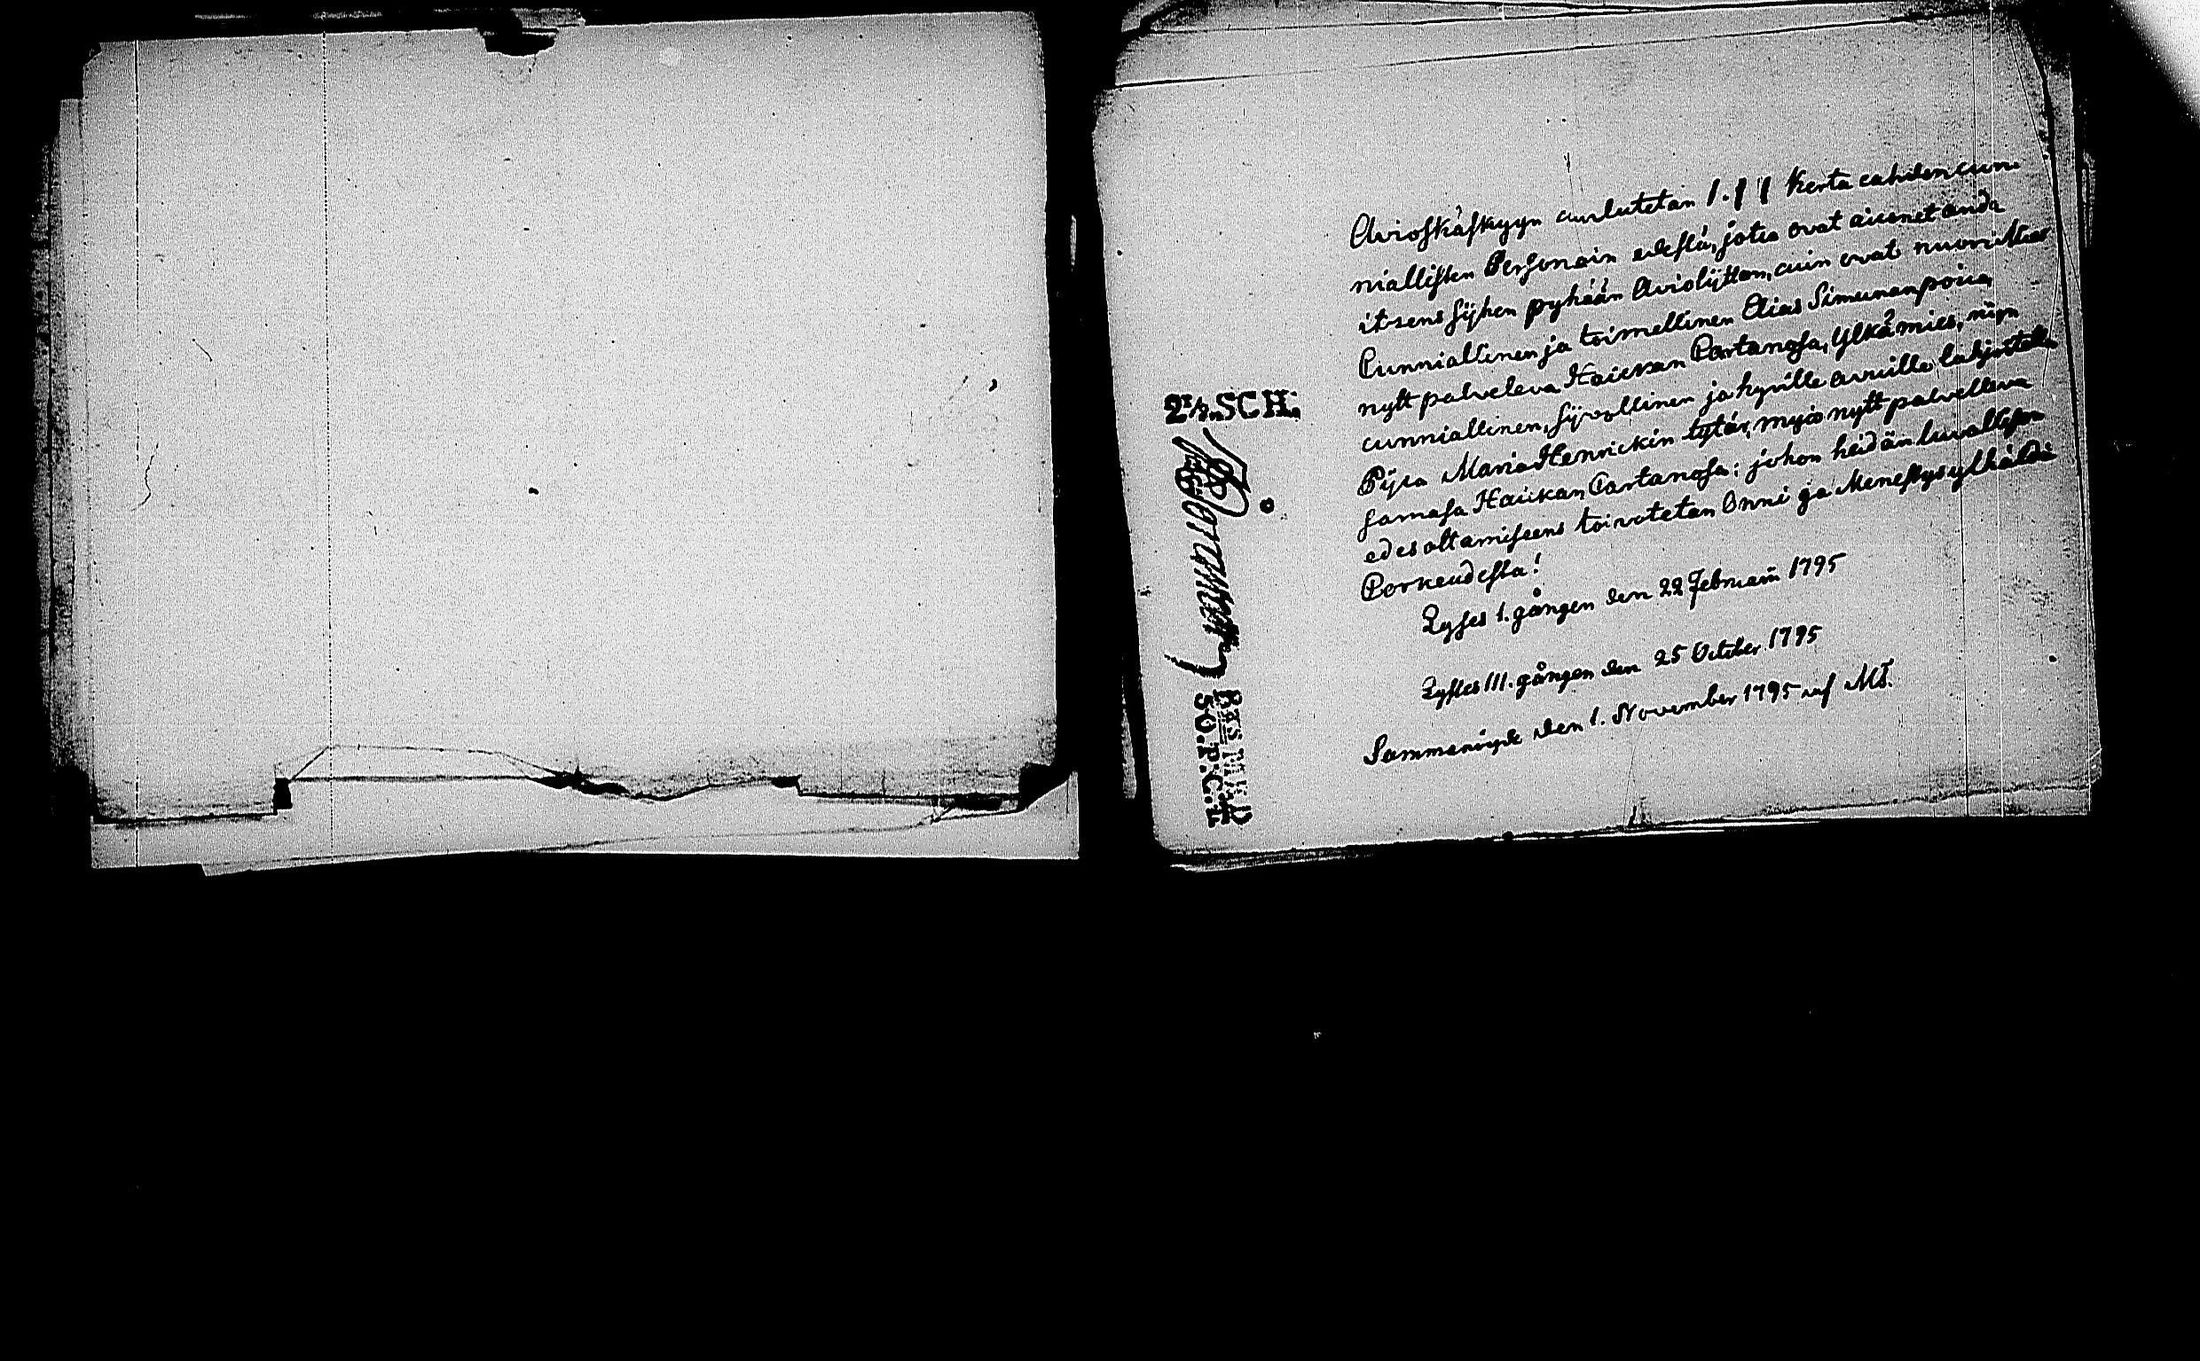 2½ SCH.
BAS MKK
SG.P.C.T
Aviofkäfkyyn cuulutetan 1. Kerta cahden cun-
niallisten Personain edestä, jotca ovat aicunet anda
itzens sijhen pyhään Aviolijttoon, cuin ovat nuori Mies
Cunniallinen ja toimellinen Elias Simunanpoica,
nytt palveleva Haickan Cartanosa, Ylkämies, nijn
cunniallinen, sijvollinen ja hyville avuille lahjoitettu
Pijca Maria Henrickin tytär, myös nytt palveleva
samasa Haickan Cartanosa; johon heidän luvallisen
edesottamiseens toivotetan Onni ja Menestys ylhäldä
Corkeudesta!
Lystes 1. gången den 22 Februarii 1795
Lystes III. gången den 25 October 1795
Sammanvigde den 1. November 1795 af